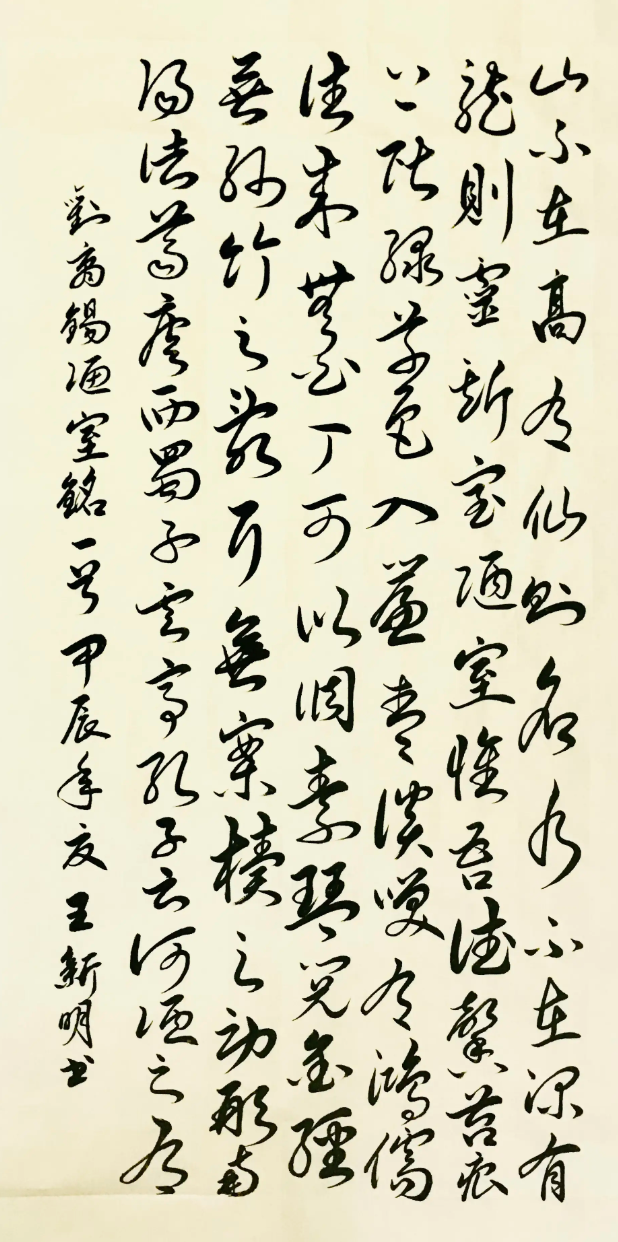 山不在高有仙則名水不在深有
龍則靈斯室陋室惟吾德馨苔痕
上階綠草色入簾青談笑有鴻儒
往來無白丁可以調素琴閱金經
無絲竹之亂耳無案牘之勞形南
陽諸葛廬西蜀子雲亭孔子云何陋之有
劉禹錫陋室銘一首甲辰年夏王新明書